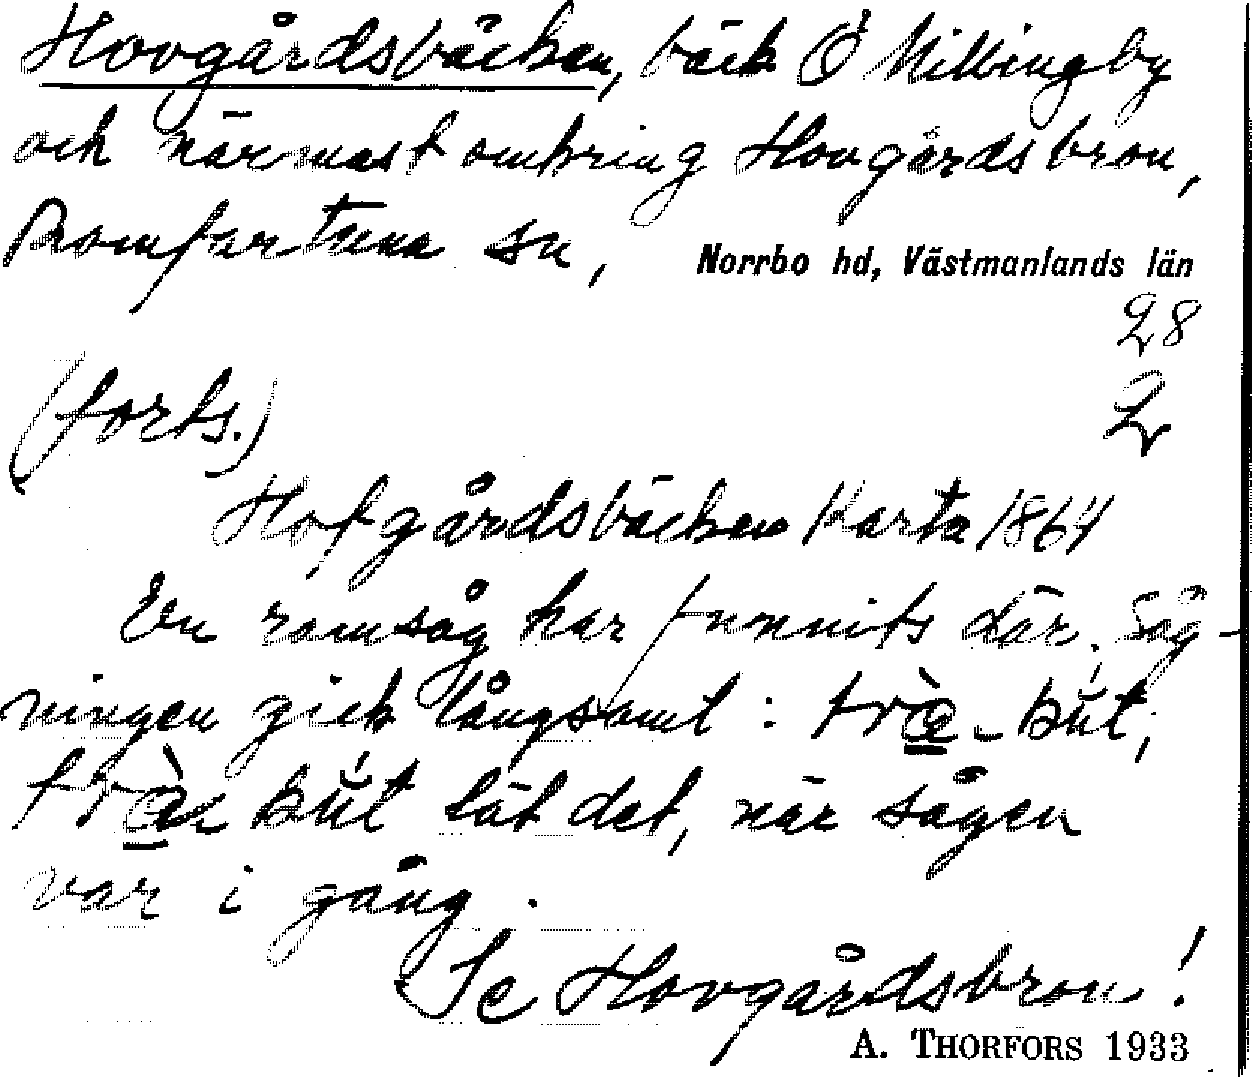 Hovgårdsbäcken, bäck Ö Millingby
och närmast omkring Hovgårdsbron,
Romfartuna sn, Norrbo hd, Västmanlands län
28
2
(forts.)
Hofgårdsbäcken Karta 1864
En ramsåg har funnits där. Såg-
ningen gick långsamt: træ̀-bŭt,
træ̀-bŭt lät det, när sågen
var i gång.
Se Hovgårdsbron!
A. THORFORS 1933